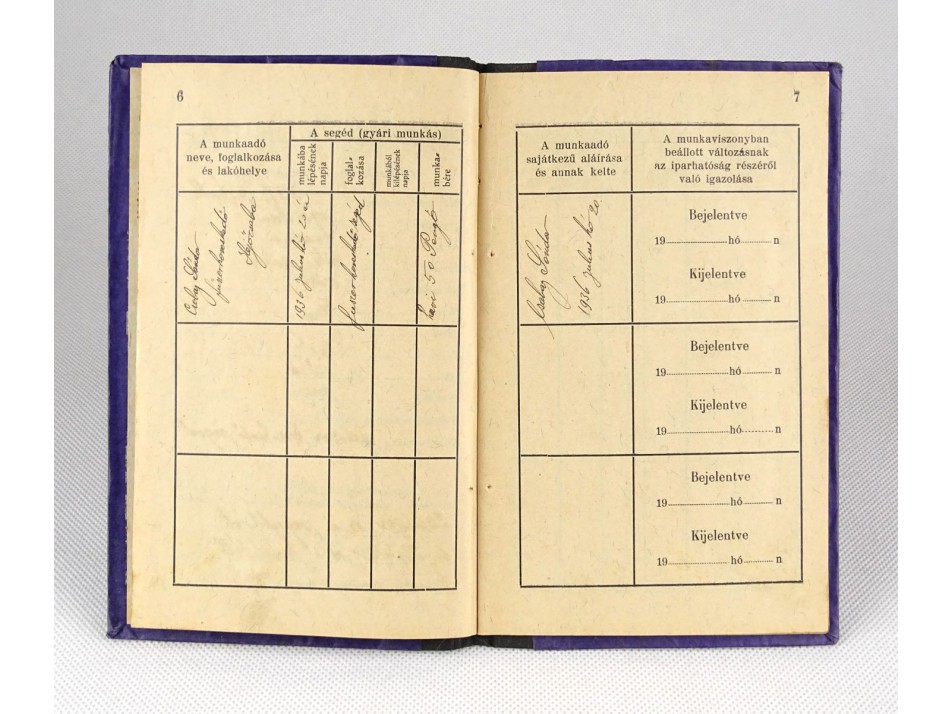 6
A munkaadó
neve, foglalkozása
és lakóhelye
A segéd (gyári munkás)
munkába
lépésének
napja
foglal-
kozása
munkából
kilépésének
napja
munka-
bére
Sándor
füszerkereskedő
1936 julius hó 20 án
füszerkereskedő segéd
havi 50 Pengő
7
A munkaadó
sajátkezű aláírása
és annak kelte
A munkaviszonyban
beállott változásnak
az iparhatóság részéről
való igazolása
Sándor
1936 julius hó 20.
Bejelentve
19 hó n
Kijelentve
19 hó n
Bejelentve
19 hó n
Kijelentve
19 hó n
Bejelentve
19 hó n
Kijelentve
19 hó n